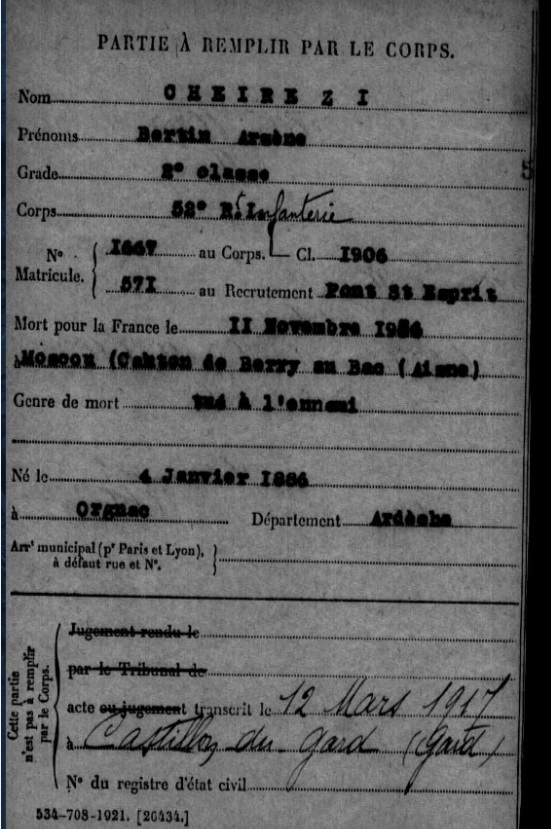 PARTIE À REMPLIR PAR LE CORPS.
Nom CHEIREZZI
Prénoms Bertin Arsène
Grade 2º classe
5
Corps 52º R.t Infanterie
Nº Matricule. { 1667 au Corps. Cl. 1906
571 au Recrutement Pont St Esprit
Mort pour la France le 11 Novembre
à Moscou (Canton de Berry au Bac (Aisne)
Genre de mort tué à l'ennemi
Né le 4 Janvier 1886
à Orgnac Département Ardèche
Arr.t municipal (p.r Paris et Lyon), à défaut rue et Nº.
Cette partie n'est pas à remplir par le Corps.
Jugement rendu le
par le Tribunal de
acte ou jugement transcrit le 12 Mars 1917
à Castillon du Gard (Gard)
Nº du registre d'état civil
534-708-1921. [26434.]